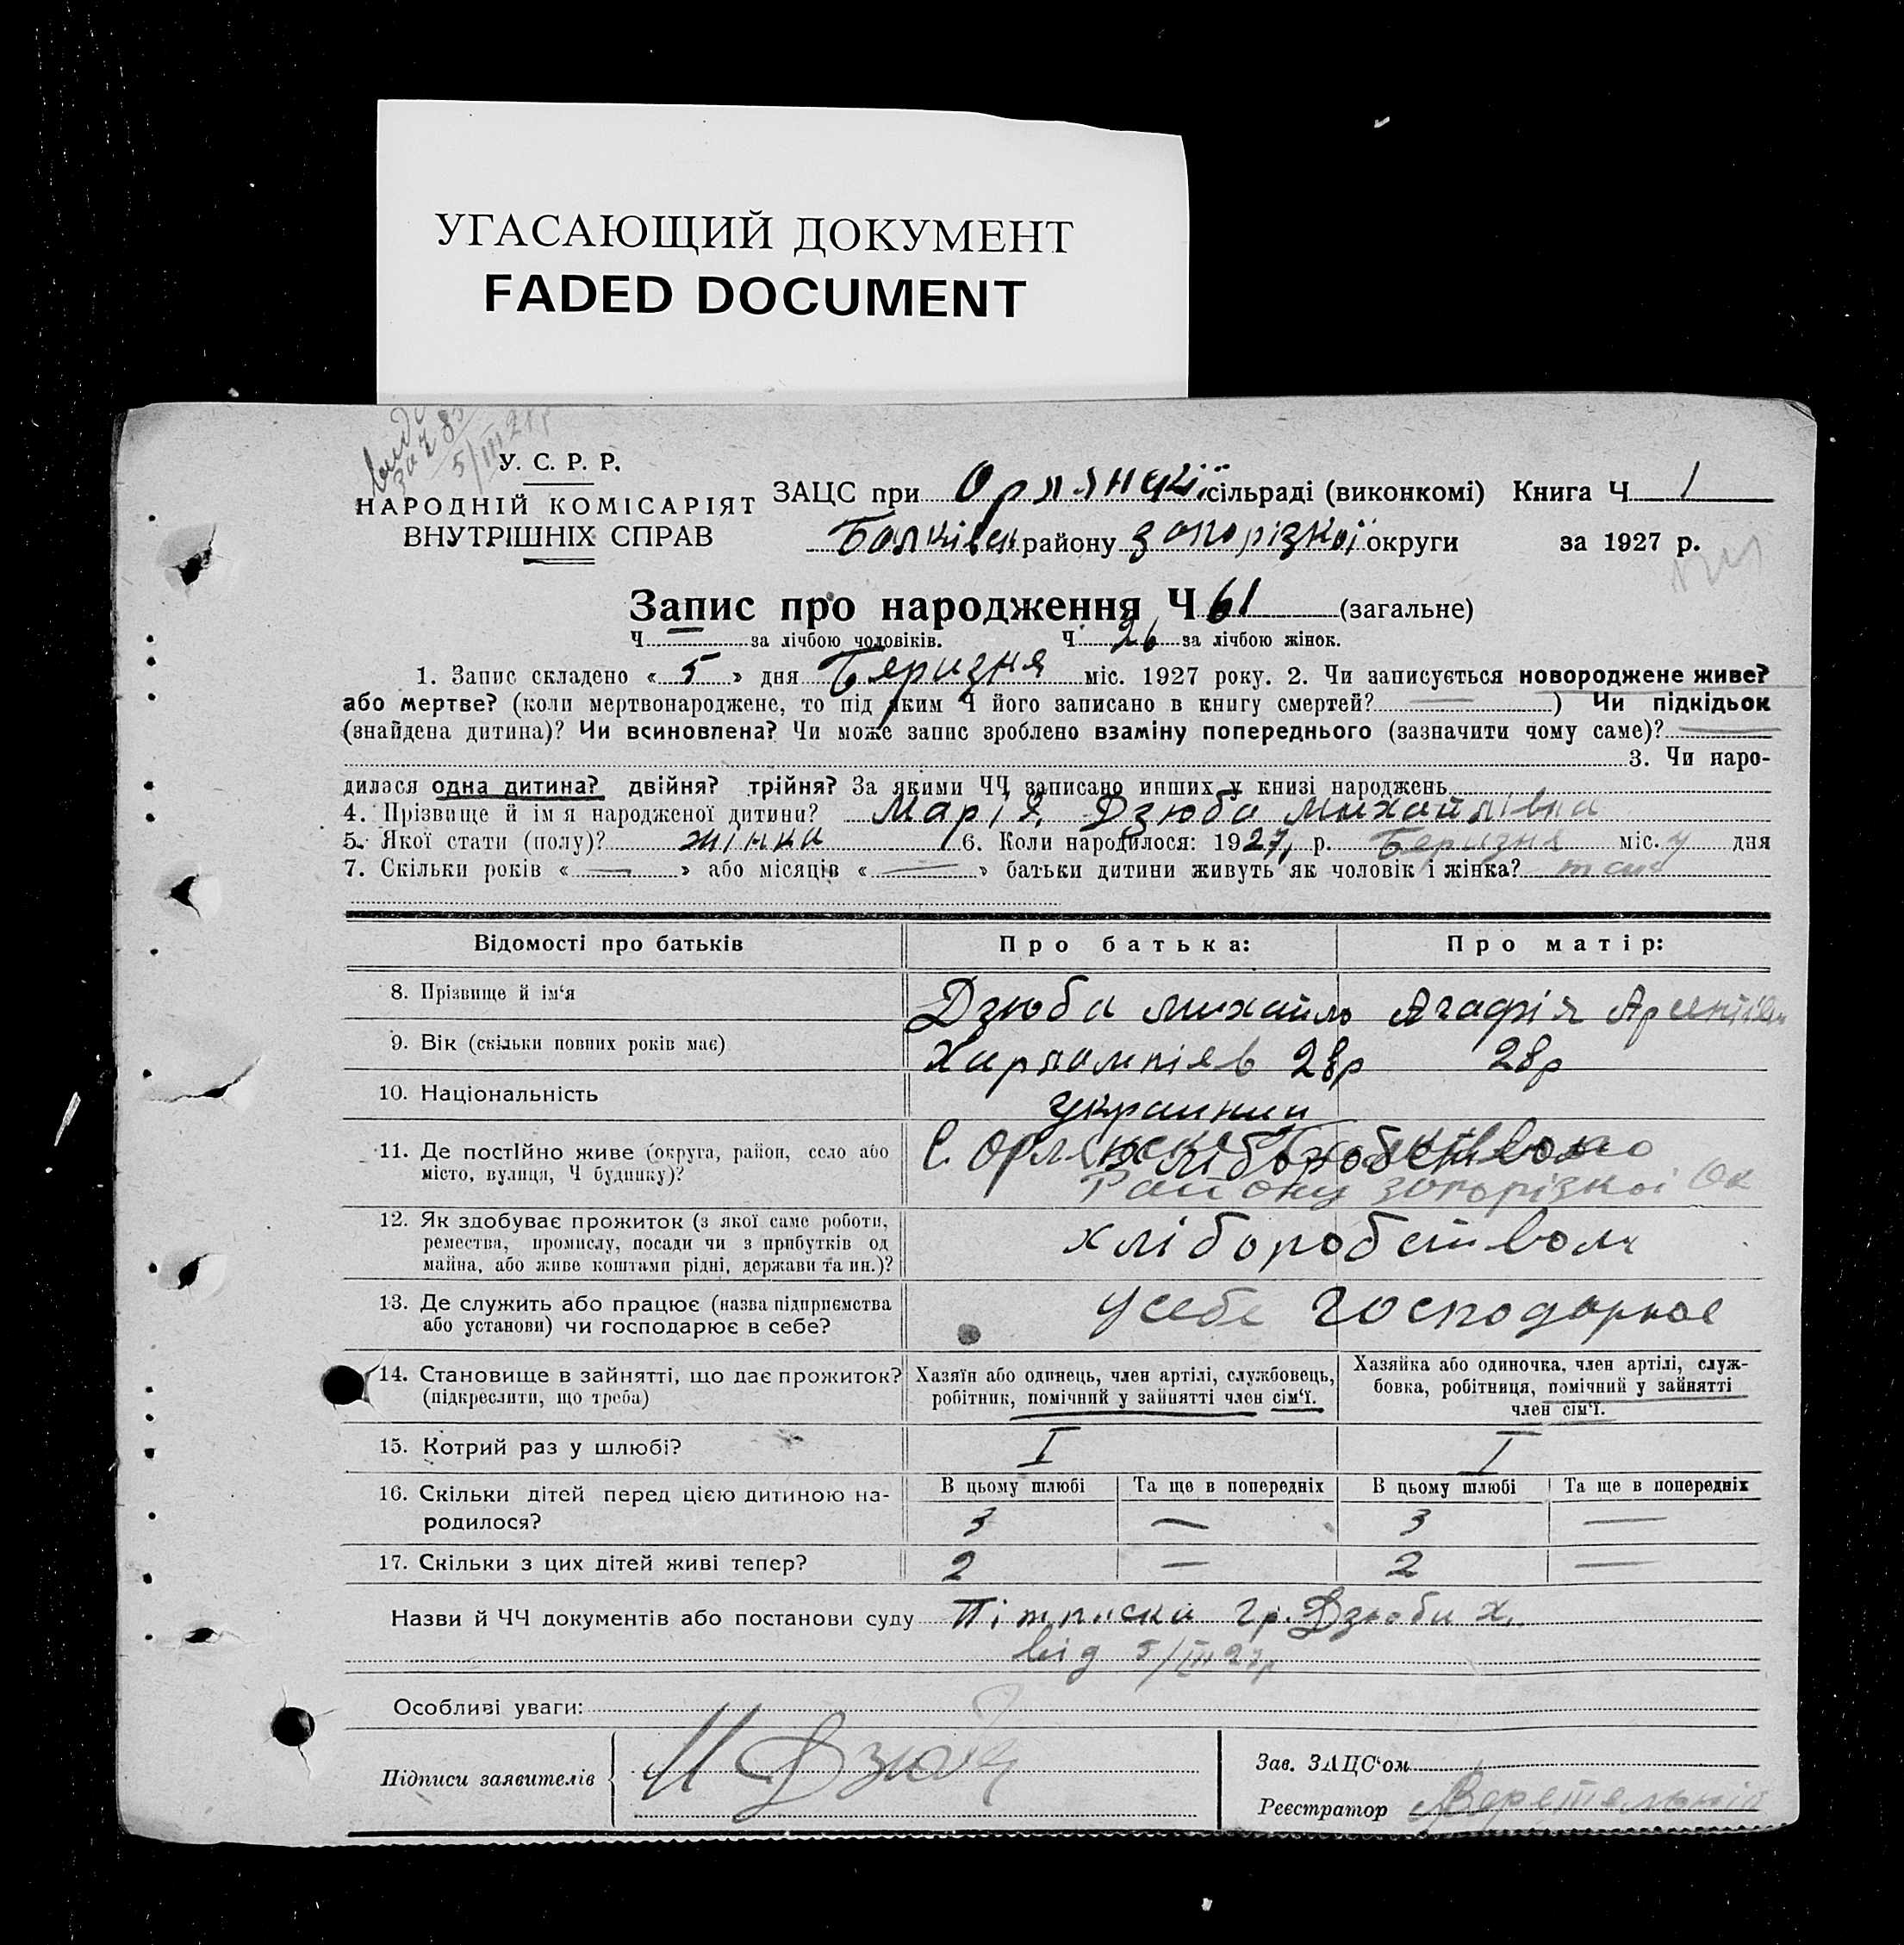 УГАСАЮЩИЙ ДОКУМЕНТ
FADED DOCUMENT
5/III 27р
У. С. Р. Р.
НАРОДНІЙ КОМІСАРІЯТ
ВНУТРІШНІХ СПРАВ
ЗАЦС при Орлянскій сільраді (виконкомі) Книга Ч 1
Балківск району запорізкої округи за 1927 р.
Запис про народження Ч 61 (загальне)
Ч — за лічбою чоловіків. Ч 26 за лічбою жінок.
1. Запис складено « 5 » дня Беризня міс. 1927 року. 2. Чи записується новороджене живе?
або мертве? (коли мертвонароджене, то під яким Ч його записано в книгу смертей? — ) Чи підкідьок
(знайдена дитина)? Чи всиновлена? Чи може запис зроблено взаміну попереднього (зазначити чому саме)? —
3. Чи наро-
дилася одна дитина? двійня? трійня? За якими ЧЧ записано инших у книзі народжень
4. Прізвище й ім я народженої дитини? Марія Дзюба михайлівна
5. Якої стати (полу)? жінка 6. Коли народилося: 1927, р. Беризня міс. 4 дня
7. Скільки років « — » або місяців « — » батьки дитини живуть як чоловік і жінка?
Відомості про батьків Про батька: Про матір:
8. Прізвище й ім‘я Дзюба михайло Агафія Арентіівн
9. Вік (скільки повних років має) Харлампіяв 28р 28р
10. Національність украинци
11. Де постійно живе (округа, район, село або
місто, вулиця, Ч будинку)? С. Орлянск
Району запорізкоі Ок
12. Як здобуває прожиток (з якої саме роботи,
ремества, промислу, посади чи з прибутків од
майна, або живе коштами рідні, держави та ин.)? хліборобством
13. Де служить або працює (назва підприємства
або установи) чи господарює в себе? усебе господарює
14. Становище в зайнятті, що дає прожиток?
(підкреслити, що треба)
Хазяїн або одинець, член артілі, службовець,
робітник, помічний у зайнятті член сім‘ї.
Хазяйка або одиночка, член артілі, служ-
бовка, робітниця, помічний у зайнятті
член сім‘ї.
15. Котрий раз у шлюбі? I I
16. Скільки дітей перед цією дитиною на-
родилося?
В цьому шлюбі Та ще в попередніх В цьому шлюбі Та ще в попередніх
3 — 3 —
17. Скільки з цих дітей живі тепер? 2 — 2 —
Назви й ЧЧ документів або постанови суду Пітписка гр. Дзюби Х.
від 5/III 27р
Особливі уваги:
Підписи заявителів М Дзюба
Зав. ЗАЦС‘ом
Реєстратор